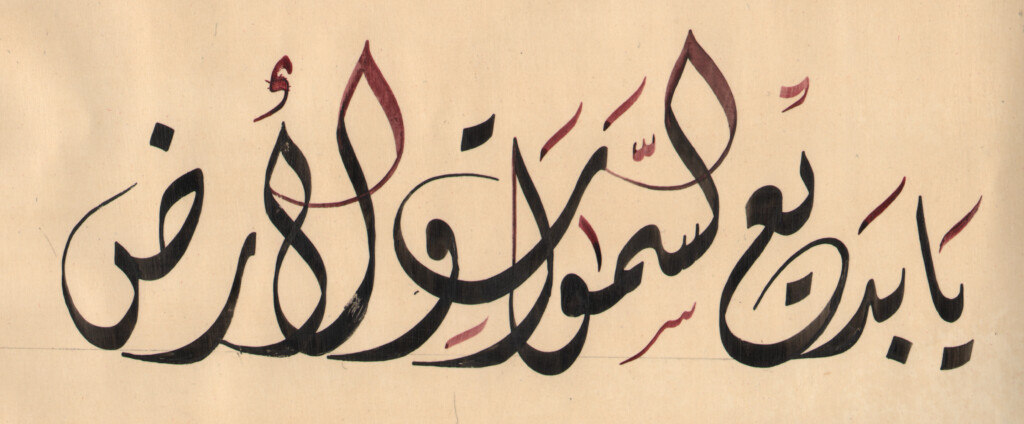 يَا بَدِيعُ السَّمٰوَاتِ وَالأَرض